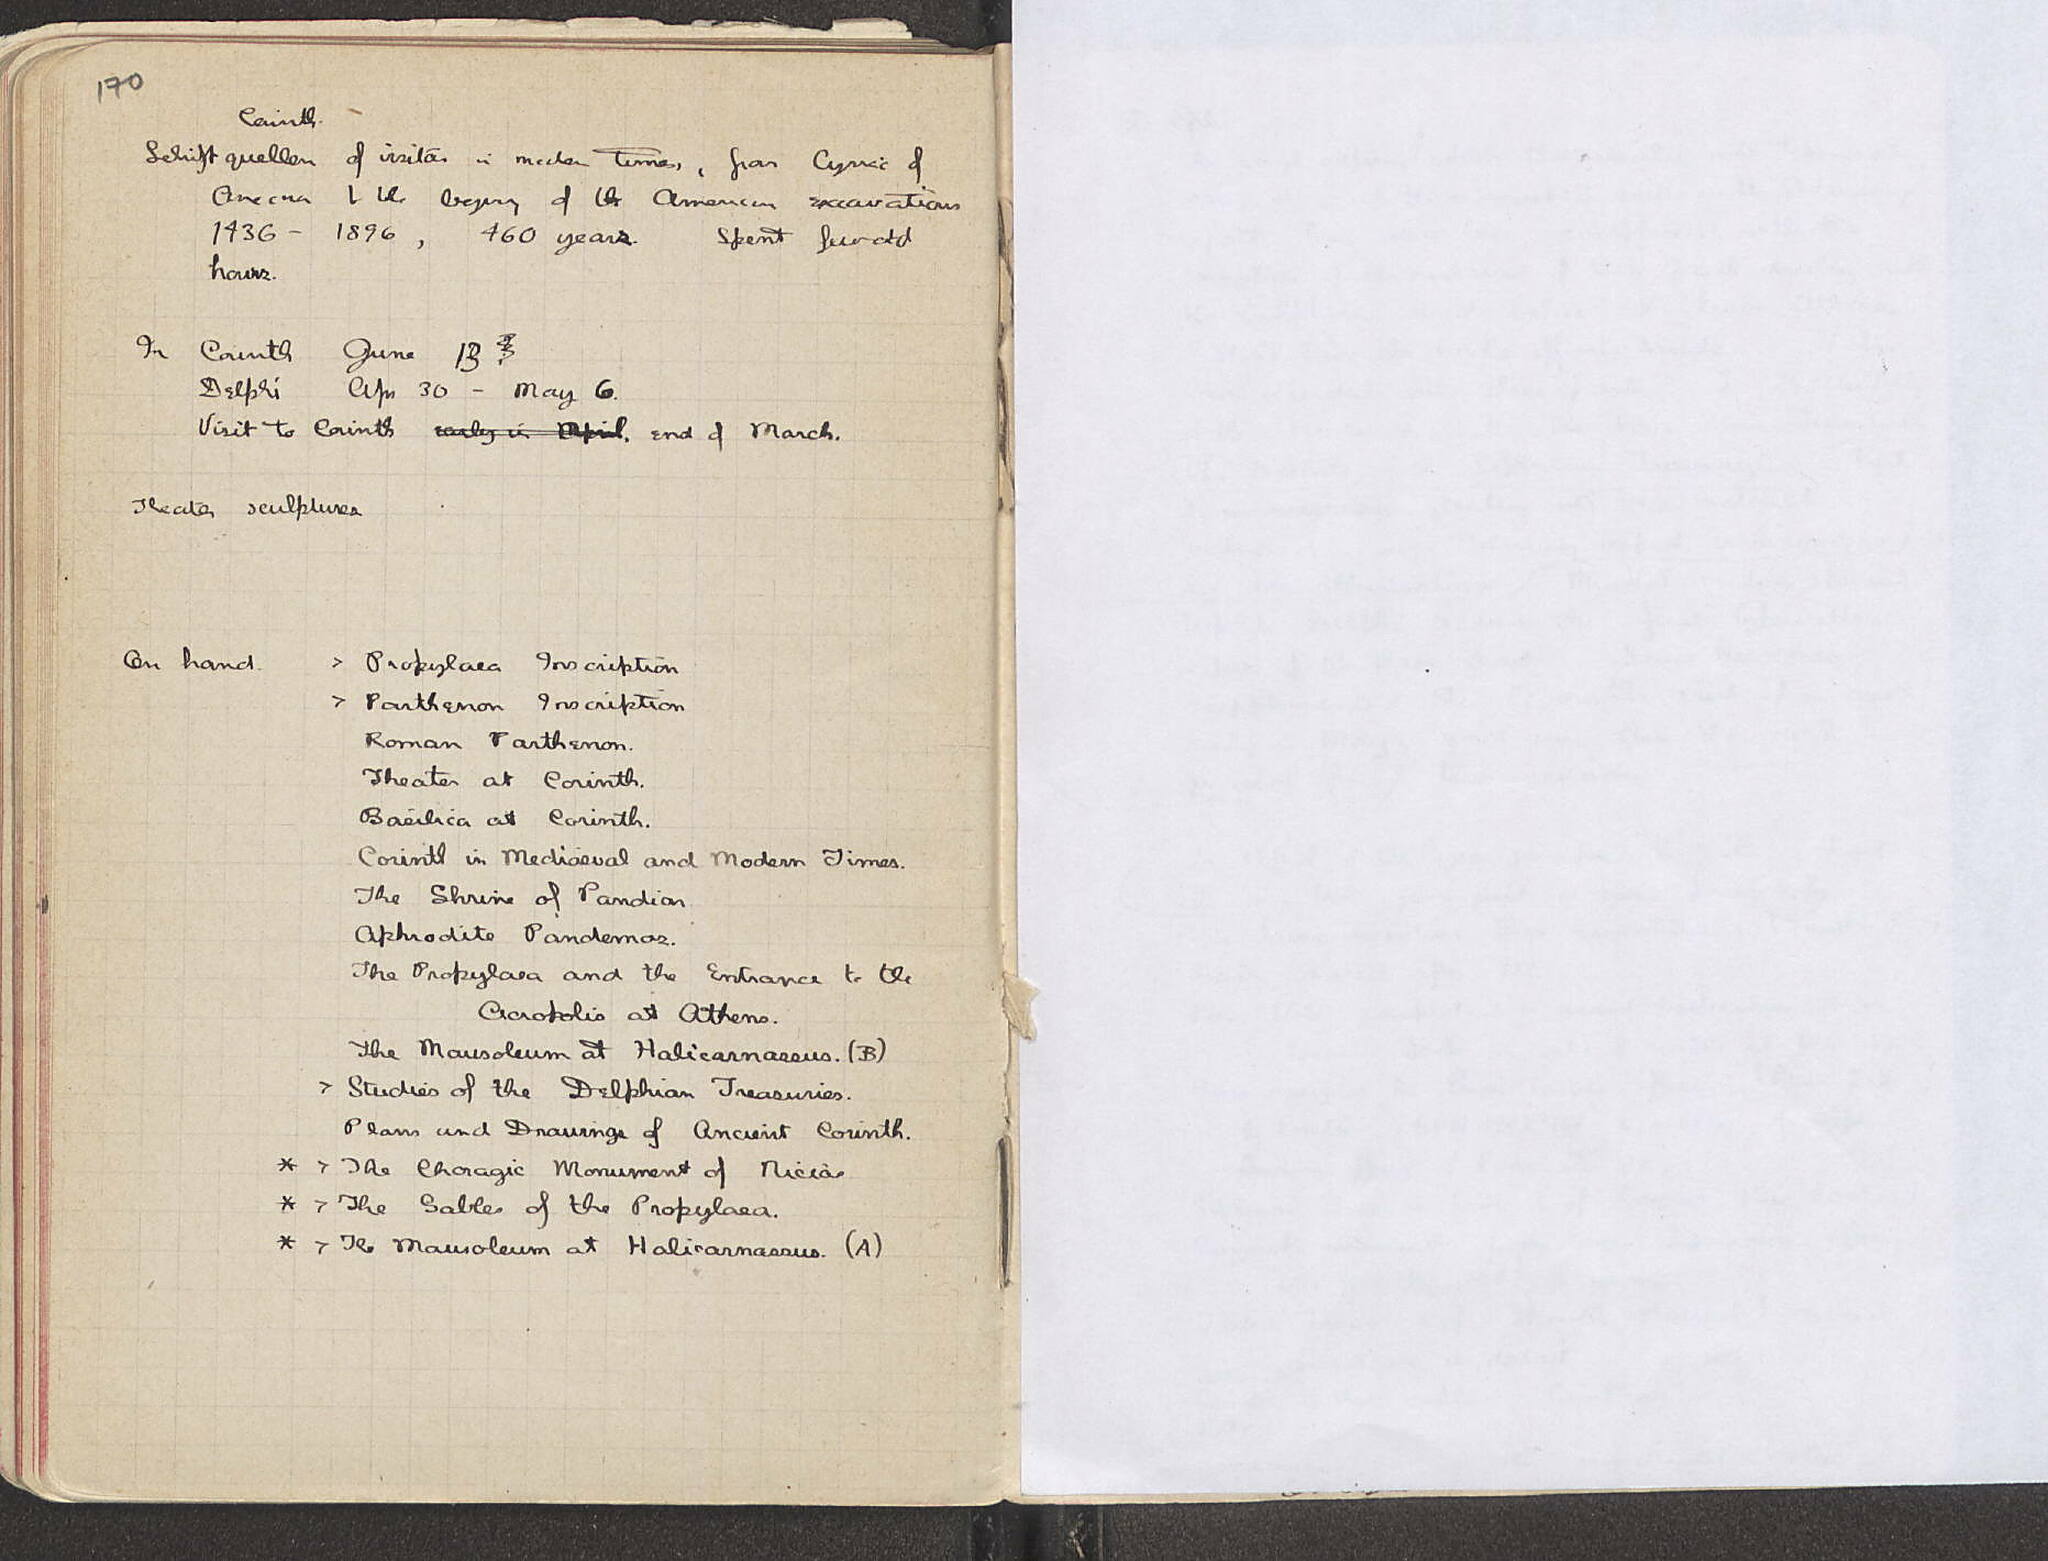 170
Corinth.
Schriftquellen of visitors in modern times, from Cyriac of
Ancona to the beginning of the American excavations
1436 - 1896, 460 years. Spent few odd
hours.
In Corinth June 13
Delphi Apr 30 - May 6.
Visit to Corinth early in April, end of March.
Theater sculptures
On hand. > Propylaea Inscription
> Parthenon Inscription
Roman Parthenon.
Theater at Corinth.
Basilica at Corinth.
Corinth in Mediaeval and Modern Times.
The Shrine of Pandion
Aphrodite Pandemos.
The Propylaea and the Entrance to the
Acropolis at Athens.
The Mausoleum at Halicarnassus. (B)
> Studies of the Delphian Treasuries.
Plans and Drawings of Ancient Corinth.
* > The Choragic Monument of Nicias
* > The Gables of the Propylaea.
* > The Mausoleum at Halicarnassus. (A)